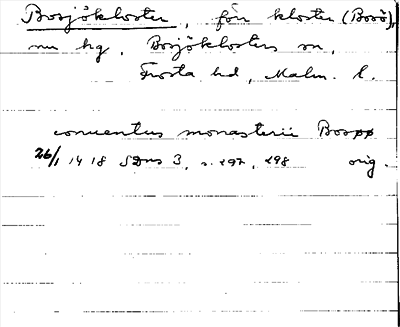 Bosjökloster, förr kloster (Bosö),
nu hg. Bosjöklosters sn,
Frosta hd, Malm. l.
conuentus monasterii Bosøø
26/1 1418 SDns 3, s. 297, 298 orig.